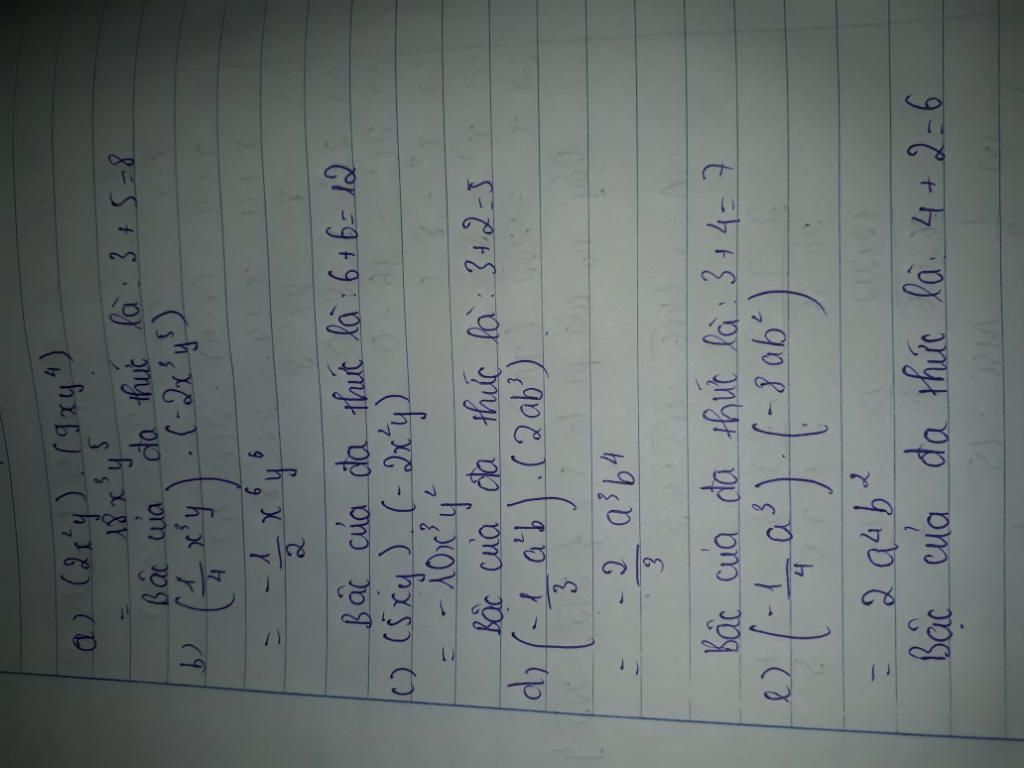 a) (2x²y) . (9xy⁴)
= 18x³y⁵
Bậc của đa thức là : 3 + 5 = 8
b) (1/4 x³y) . (-2x³y⁵)
= -1/2 x⁶y⁶
Bậc của đa thức là : 6 + 6 = 12
c) (5xy) . (-2x²y)
= -10x³y²
Bậc của đa thức là : 3 + 2 = 5
d) (-1/3 a²b) . (2ab³)
= -2/3 a³b⁴
Bậc của đa thức là : 3 + 4 = 7
e) (-1/4 a³) . (-8ab²)
= 2a⁴b²
Bậc của đa thức là : 4 + 2 = 6